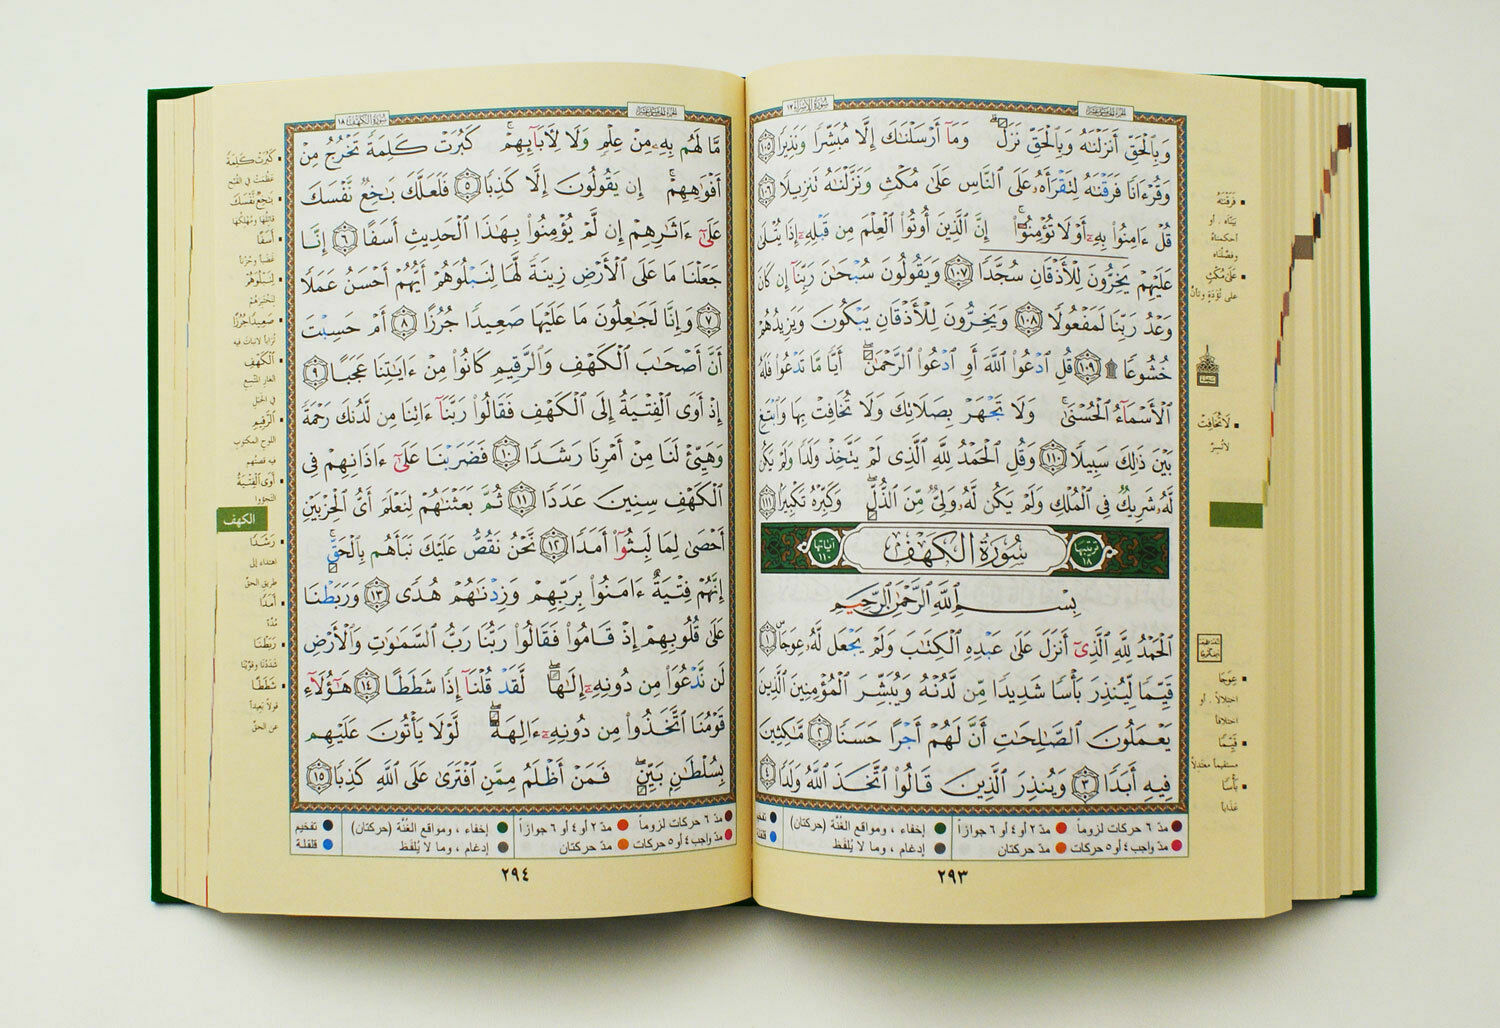 سُورَةُ الإِسۡرَاءِ ١٧
وَبِٱلۡحَقِّ أَنزَلۡنَٰهُ وَبِٱلۡحَقِّ نَزَلَۗ وَمَآ أَرۡسَلۡنَٰكَ إِلَّا مُبَشِّرٗا وَنَذِيرٗا ١٠٥
وَقُرۡءَانٗا فَرَقۡنَٰهُ لِتَقۡرَأَهُۥ عَلَى ٱلنَّاسِ عَلَىٰ مُكۡثٖ وَنَزَّلۡنَٰهُ تَنزِيلٗا ١٠٦
قُلۡ ءَامِنُواْ بِهِۦٓ أَوۡ لَا تُؤۡمِنُوٓاْۚ إِنَّ ٱلَّذِينَ أُوتُواْ ٱلۡعِلۡمَ مِن قَبۡلِهِۦٓ إِذَا يُتۡلَىٰ
عَلَيۡهِمۡ يَخِرُّونَۤ لِلۡأَذۡقَانِۤ سُجَّدٗاۤ ١٠٧ وَيَقُولُونَ سُبۡحَٰنَ رَبِّنَآ إِن كَانَ
وَعۡدُ رَبِّنَا لَمَفۡعُولٗا ١٠٨ وَيَخِرُّونَ لِلۡأَذۡقَانِ يَبۡكُونَ وَيَزِيدُهُمۡ
خُشُوعٗا ۩ ١٠٩ قُلِ ٱدۡعُواْ ٱللَّهَ أَوِ ٱدۡعُواْ ٱلرَّحۡمَٰنَۖ أَيّٗا مَّا تَدۡعُواْ فَلَهُ
ٱلۡأَسۡمَآءُ ٱلۡحُسۡنَىٰۚ وَلَا تَجۡهَرۡ بِصَلَاتِكَ وَلَا تُخَافِتۡ بِهَا وَٱبۡتَغِ
بَيۡنَ ذَٰلِكَ سَبِيلٗا ١١٠ وَقُلِ ٱلۡحَمۡدُ لِلَّهِ ٱلَّذِي لَمۡ يَتَّخِذۡ وَلَدٗا وَلَمۡ يَكُن
لَّهُۥ شَرِيكٞ فِي ٱلۡمُلۡكِ وَلَمۡ يَكُن لَّهُۥ وَلِيّٞ مِّنَ ٱلذُّلِّۖ وَكَبِّرۡهُ تَكۡبِيرَۢا ١١١
ترتيبها ١٨ سُورَةُ الكَهۡفِ آياتها ١١٠
بِسۡمِ ٱللَّهِ ٱلرَّحۡمَٰنِ ٱلرَّحِيمِ
ٱلۡحَمۡدُ لِلَّهِ ٱلَّذِيٓ أَنزَلَ عَلَىٰ عَبۡدِهِ ٱلۡكِتَٰبَ وَلَمۡ يَجۡعَل لَّهُۥ عِوَجَاۜ ١
قَيِّمٗا لِّيُنذِرَ بَأۡسٗا شَدِيدٗا مِّن لَّدُنۡهُ وَيُبَشِّرَ ٱلۡمُؤۡمِنِينَ ٱلَّذِينَ
يَعۡمَلُونَ ٱلصَّٰلِحَٰتِ أَنَّ لَهُمۡ أَجۡرًا حَسَنٗا ٢ مَّٰكِثِينَ
فِيهِ أَبَدٗا ٣ وَيُنذِرَ ٱلَّذِينَ قَالُواْ ٱتَّخَذَ ٱللَّهُ وَلَدٗا ٤
فَرَقۡنَٰهُ
بيّنّاه ، أو
أحكمناه
وفصّلناه
عَلَىٰ مُكۡثٖ
على تُؤدَةٍ وتأنٍّ
لَا تُخَافِتۡ
لا تُسِرّ
عِوَجَا
اختلالاً ، أو
اختلافاً
قَيِّمٗا
مستقيماً معتدِلاً
بَأۡسٗا
عَذاباً
مدّ ٦ حركات لزوماً مدّ ٢ أو ٤ أو ٦ جوازاً إخفاء ، ومواقع الغُنَّة (حركتان) تفخيم
مدّ واجب ٤ أو ٥ حركات مدّ حركتان إدغام ، وما لا يُلفَظ قلقلة
٢٩٣
سُورَةُ الكَهۡفِ ١٨
مَّا لَهُم بِهِۦ مِنۡ عِلۡمٖ وَلَا لِأٓبَآئِهِمۡۚ كَبُرَتۡ كَلِمَةٗ تَخۡرُجُ مِنۡ
أَفۡوَٰهِهِمۡۚ إِن يَقُولُونَ إِلَّا كَذِبٗا ٥ فَلَعَلَّكَ بَٰخِعٞ نَّفۡسَكَ
عَلَىٰٓ ءَاثَٰرِهِمۡ إِن لَّمۡ يُؤۡمِنُواْ بِهَٰذَا ٱلۡحَدِيثِ أَسَفًا ٦ إِنَّا
جَعَلۡنَا مَا عَلَى ٱلۡأَرۡضِ زِينَةٗ لَّهَا لِنَبۡلُوَهُمۡ أَيُّهُمۡ أَحۡسَنُ عَمَلٗا
٧ وَإِنَّا لَجَٰعِلُونَ مَا عَلَيۡهَا صَعِيدٗا جُرُزًا ٨ أَمۡ حَسِبۡتَ
أَنَّ أَصۡحَٰبَ ٱلۡكَهۡفِ وَٱلرَّقِيمِ كَانُواْ مِنۡ ءَايَٰتِنَا عَجَبًا ٩
إِذۡ أَوَى ٱلۡفِتۡيَةُ إِلَى ٱلۡكَهۡفِ فَقَالُواْ رَبَّنَآ ءَاتِنَا مِن لَّدُنكَ رَحۡمَةٗ
وَهَيِّئۡ لَنَا مِنۡ أَمۡرِنَا رَشَدٗا ١٠ فَضَرَبۡنَا عَلَىٰٓ ءَاذَانِهِمۡ فِي
ٱلۡكَهۡفِ سِنِينَ عَدَدٗا ١١ ثُمَّ بَعَثۡنَٰهُمۡ لِنَعۡلَمَ أَيُّ ٱلۡحِزۡبَيۡنِ
أَحۡصَىٰ لِمَا لَبِثُوٓاْ أَمَدٗا ١٢ نَّحۡنُ نَقُصُّ عَلَيۡكَ نَبَأَهُم بِٱلۡحَقِّۚ
إِنَّهُمۡ فِتۡيَةٌ ءَامَنُواْ بِرَبِّهِمۡ وَزِدۡنَٰهُمۡ هُدٗى ١٣ وَرَبَطۡنَا
عَلَىٰ قُلُوبِهِمۡ إِذۡ قَامُواْ فَقَالُواْ رَبُّنَا رَبُّ ٱلسَّمَٰوَٰتِ وَٱلۡأَرۡضِ
لَن نَّدۡعُوَاْ مِن دُونِهِۦٓ إِلَٰهٗاۖ لَّقَدۡ قُلۡنَآ إِذٗا شَطَطًا ١٤ هَٰٓؤُلَآءِ
قَوۡمُنَا ٱتَّخَذُواْ مِن دُونِهِۦٓ ءَالِهَةٗۖ لَّوۡلَا يَأۡتُونَ عَلَيۡهِم
بِسُلۡطَٰنِۭ بَيِّنٖۖ فَمَنۡ أَظۡلَمُ مِمَّنِ ٱفۡتَرَىٰ عَلَى ٱللَّهِ كَذِبٗا ١٥
كَبُرَتۡ كَلِمَةٗ
عَظُمَت في القُبح
بَٰخِعٞ نَّفۡسَكَ
قاتِلُها ومُهلِكُها
أَسَفًا
غضباً وحُزناً
لِنَبۡلُوَهُمۡ
لِنَختَبِرَهُم
صَعِيدٗا جُرُزًا
تُراباً لا نبات فيه
ٱلۡكَهۡفِ
الغار المتّسِع
في الجَبَل
ٱلرَّقِيمِ
اللوح المكتوب
فيه قصتُهم
أَوَى ٱلۡفِتۡيَةُ
التجؤوا
الكهف
رَشَدٗا
اهتداء إلى
طريق الحقّ
أَمَدٗا
مُدّة
رَبَطۡنَا
شَدَدْنا وقوّينا
شَطَطًا
قولاً بعيداً
عن الحقّ
مدّ ٦ حركات لزوماً مدّ ٢ أو ٤ أو ٦ جوازاً إخفاء ، ومواقع الغُنَّة (حركتان) تفخيم
مدّ واجب ٤ أو ٥ حركات مدّ حركتان إدغام ، وما لا يُلفَظ قلقلة
٢٩٤